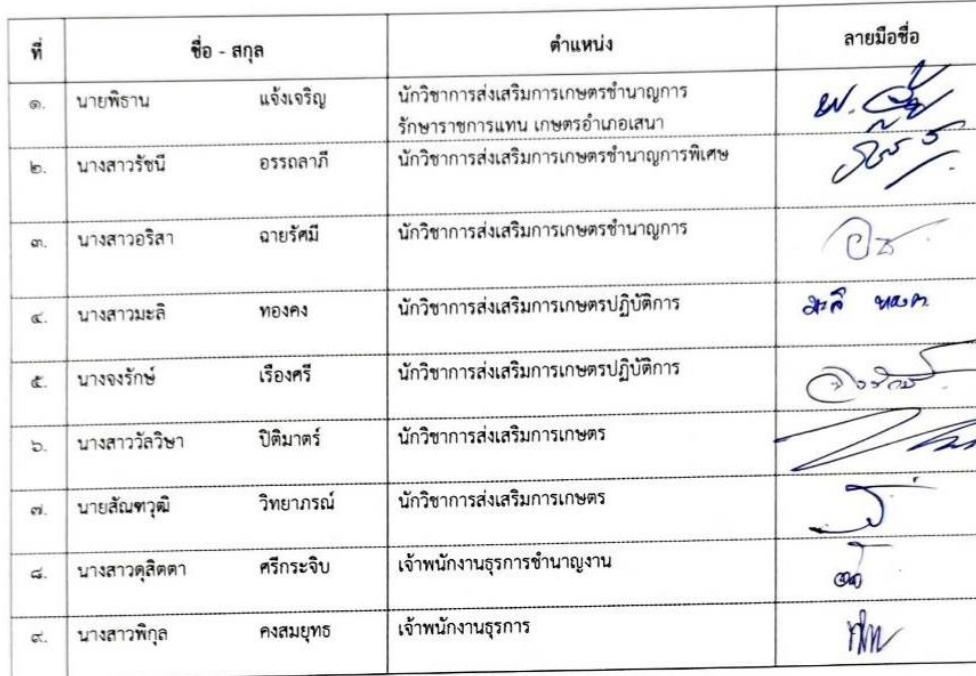 ที่ ชื่อ - สกุล ตำแหน่ง ลายมือชื่อ
๑. นายพิธาน แจ้งเจริญ นักวิชาการส่งเสริมการเกษตรชำนาญการ
รักษาราชการแทน เกษตรอำเภอเสนา
๒. นางสาวรัชนี อรรถลาภี นักวิชาการส่งเสริมการเกษตรชำนาญการพิเศษ
๓. นางสาวอริสา ฉายรัศมี นักวิชาการส่งเสริมการเกษตรชำนาญการ
๔. นางสาวมะลิ ทองคง นักวิชาการส่งเสริมการเกษตรปฏิบัติการ มะลิ
๕. นางจงรักษ์ เรืองศรี นักวิชาการส่งเสริมการเกษตรปฏิบัติการ
๖. นางสาววัลวิษา ปิติมาตร์ นักวิชาการส่งเสริมการเกษตร
๗. นายสัณฑวุฒิ วิทยาภรณ์ นักวิชาการส่งเสริมการเกษตร
๘. นางสาวดุสิตตา ศรีกระจิบ เจ้าพนักงานธุรการชำนาญงาน
๙. นางสาวพิกุล คงสมยุทธ เจ้าพนักงานธุรการ